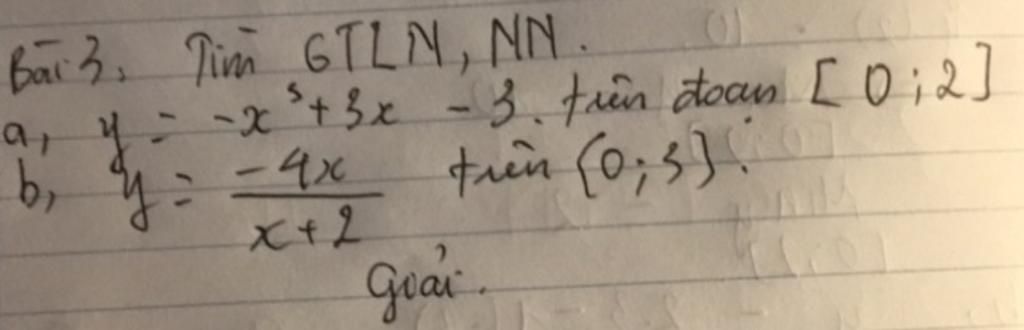 Bài 3, Tìm GTLN, NN.
a, y = -x³ + 3x - 3. trên đoạn [0;2]
b, y = \frac{-4x}{x+2} trên [0;3].
Giải.